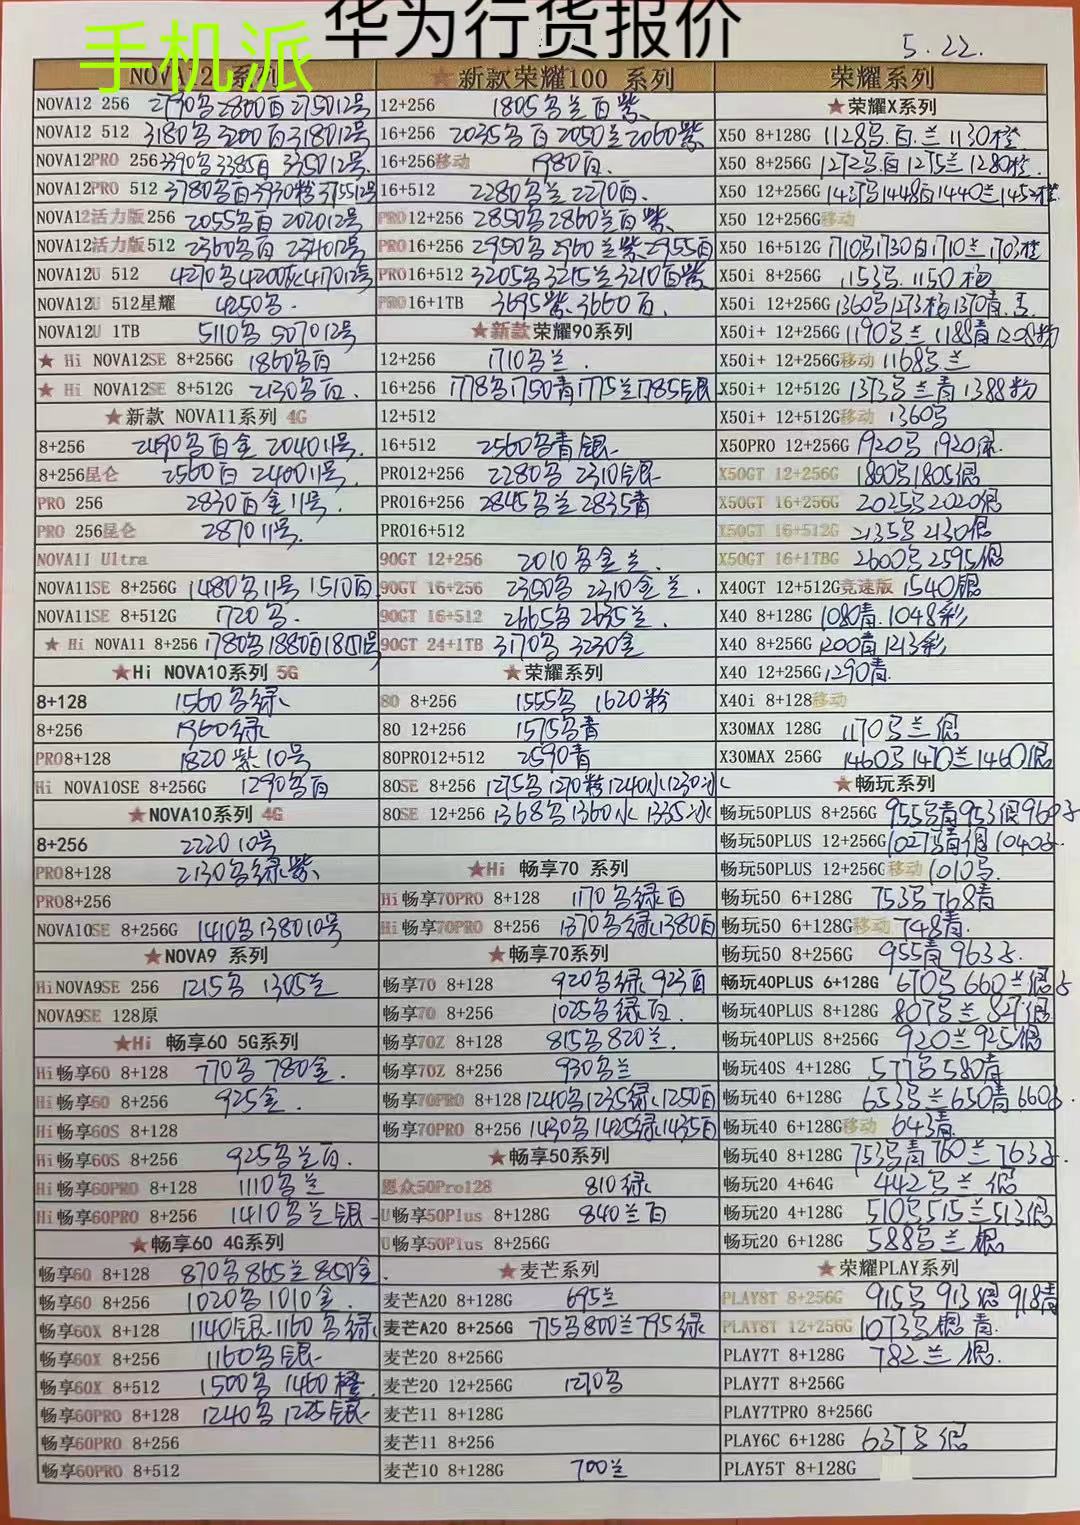 华为行货报价
手机派
5.22.
NOVA12 系列
NOVA12 256 2790另2800百275012号
NOVA12 512 3180另3200百318012号
NOVA12PRO 256 3390另3385百335012号
NOVA12PRO 512 3780另百3930粉375512号
NOVA12活力版256 2055另百202012号
NOVA12活力版512 2360另百234012号
NOVA12U 512 4270另4200灰417012号
NOVA12U 512星耀 4250另.
NOVA12U 1TB 5110另507012号
★ Hi NOVA12SE 8+256G 1860另百
★ Hi NOVA12SE 8+512G 2130另百.
★新款 NOVA11系列 4G
8+256 2490另百金204011号.
8+256昆仑 2560百240011号.
PRO 256 2830百金11号.
PRO 256昆仑 287011号.
NOVA11 Ultra
NOVA11SE 8+256G 1480另11号1510百
NOVA11SE 8+512G 1720另.
★ Hi NOVA11 8+256 1780另1880百
★Hi NOVA10系列 5G
8+128 1560另绿
8+256 1960绿
PRO8+128 1820紫10号
Hi NOVA10SE 8+256G 1290另百
★NOVA10系列 4G
8+256 222010号
PRO8+128 2130另绿紫
PRO8+256
NOVA10SE 8+256G 1410另138010号
★NOVA9 系列
HiNOVA9SE 256 1215另 1305兰
NOVA9SE 128原
★Hi 畅享60 5G系列
Hi畅享60 8+128 770另780金.
Hi畅享60 8+256 925金.
Hi畅享60S 8+128
Hi畅享60S 8+256 925另兰百.
Hi畅享60PRO 8+128 1110另兰
Hi畅享60PRO 8+256 1410另兰银
★畅享60 4G系列
畅享60 8+128 870另865兰850金.
畅享60 8+256 1020另1010金.
畅享60X 8+128 1140银1160另绿
畅享60X 8+256 1160另银
畅享60X 8+512 1500另1460橙.
畅享60PRO 8+128 1240另1225银
畅享60PRO 8+256
畅享60PRO 8+512
★新款荣耀100 系列
12+256 1805另兰百紫.
16+256 2035另百2050兰2060紫
16+256移动 1980百.
16+512 2280另兰2270百.
PRO12+256 2850另2860兰百紫.
PRO16+256 2950另2960兰紫2955百
PRO16+512 3205另3215兰3210百紫
PRO16+1TB 3695紫.3660百.
★新款荣耀90系列
12+256 1710另兰.
16+256 1778另1750青1775兰1785银
12+512
16+512 2560另青银.
PRO12+256 2280另2310银
PRO16+256 2845另兰2835青
PRO16+512
90GT 12+256 2010另金兰.
90GT 16+256 2350另2310金兰.
90GT 16+512 2665另2635兰.
90GT 24+1TB 3170另3230金
★荣耀系列
80 8+256 1555另 1620粉
80 12+256 1575另青
80PRO12+512 2590青
80SE 8+256 1275另1270粉1240水1230冰
80SE 12+256 1368另1360水1335冰
★Hi 畅享70 系列
Hi畅享70PRO 8+128 1170另绿百
Hi畅享70PRO 8+256 1370另绿1380百
★畅享70系列
畅享70 8+128 920另绿923百
畅享70 8+256 1025另绿百.
畅享70Z 8+128 815另820兰.
畅享70Z 8+256 930另兰
畅享70PRO 8+128 1240另1235绿1250百
畅享70PRO 8+256 1430另1425绿1435百
★畅享50系列
愿众50Pro128 810绿
U畅享50Plus 8+128G 840兰百
U畅享50Plus 8+256G
★麦芒系列
麦芒A20 8+128G 695兰
麦芒A20 8+256G 775另800兰795绿
麦芒20 8+256G
麦芒20 12+256G 1270另
麦芒11 8+128G
麦芒11 8+256
麦芒10 8+128G 700兰
荣耀系列
★荣耀X系列
X50 8+128G 1128另.百.兰1130橙
X50 8+256G 1272另百1275兰1280橙.
X50 12+256G 1437另1448百1440兰1452橙
X50 12+256G移动
X50 16+512G 1710另1730百1710兰1703橙
X50i 8+256G 1153另.1150杨
X50i 12+256G 1360另1273杨1370青.
X50i+ 12+256G 1190另兰1188青1208粉
X50i+ 12+256G移动 1168另兰
X50i+ 12+512G 1373另兰青1388粉
X50i+ 12+512G移动 1360另
X50PRO 12+256G 1920另 1920银.
X50GT 12+256G 1800另1805银
X50GT 16+256G 2025另2020银
X50GT 16+512G 2135另2130银
X50GT 16+1TBG 2600另2595银
X40GT 12+512G竞速版 1540银
X40 8+128G 1080青.1048彩
X40 8+256G 1200青1213彩
X40 12+256G 1290青.
X40i 8+128移动
X30MAX 128G 1170另兰银
X30MAX 256G 1460另1470兰1460银
★畅玩系列
畅玩50PLUS 8+256G 955另青953银960
畅玩50PLUS 12+256G 1027另青银1040
畅玩50PLUS 12+256G移动 1010另.
畅玩50 6+128G 753另768青
畅玩50 6+128G移动 748青
畅玩50 8+256G 955青963
畅玩40PLUS 6+128G 670另660兰银
畅玩40PLUS 8+128G 807另兰827银
畅玩40PLUS 8+256G 920兰925银
畅玩40S 4+128G 577另580青
畅玩40 6+128G 653另兰650青660
畅玩40 6+128G移动 643青
畅玩40 8+128G 753另青760兰763
畅玩20 4+64G 442另兰银
畅玩20 4+128G 510另515兰513银
畅玩20 6+128G 588另兰银
★荣耀PLAY系列
PLAY8T 8+256G 915另913银918青
PLAY8T 12+256G 1073另银青.
PLAY7T 8+128G 782兰银.
PLAY7T 8+256G
PLAY7TPRO 8+256G
PLAY6C 6+128G 637另银
PLAY5T 8+128G